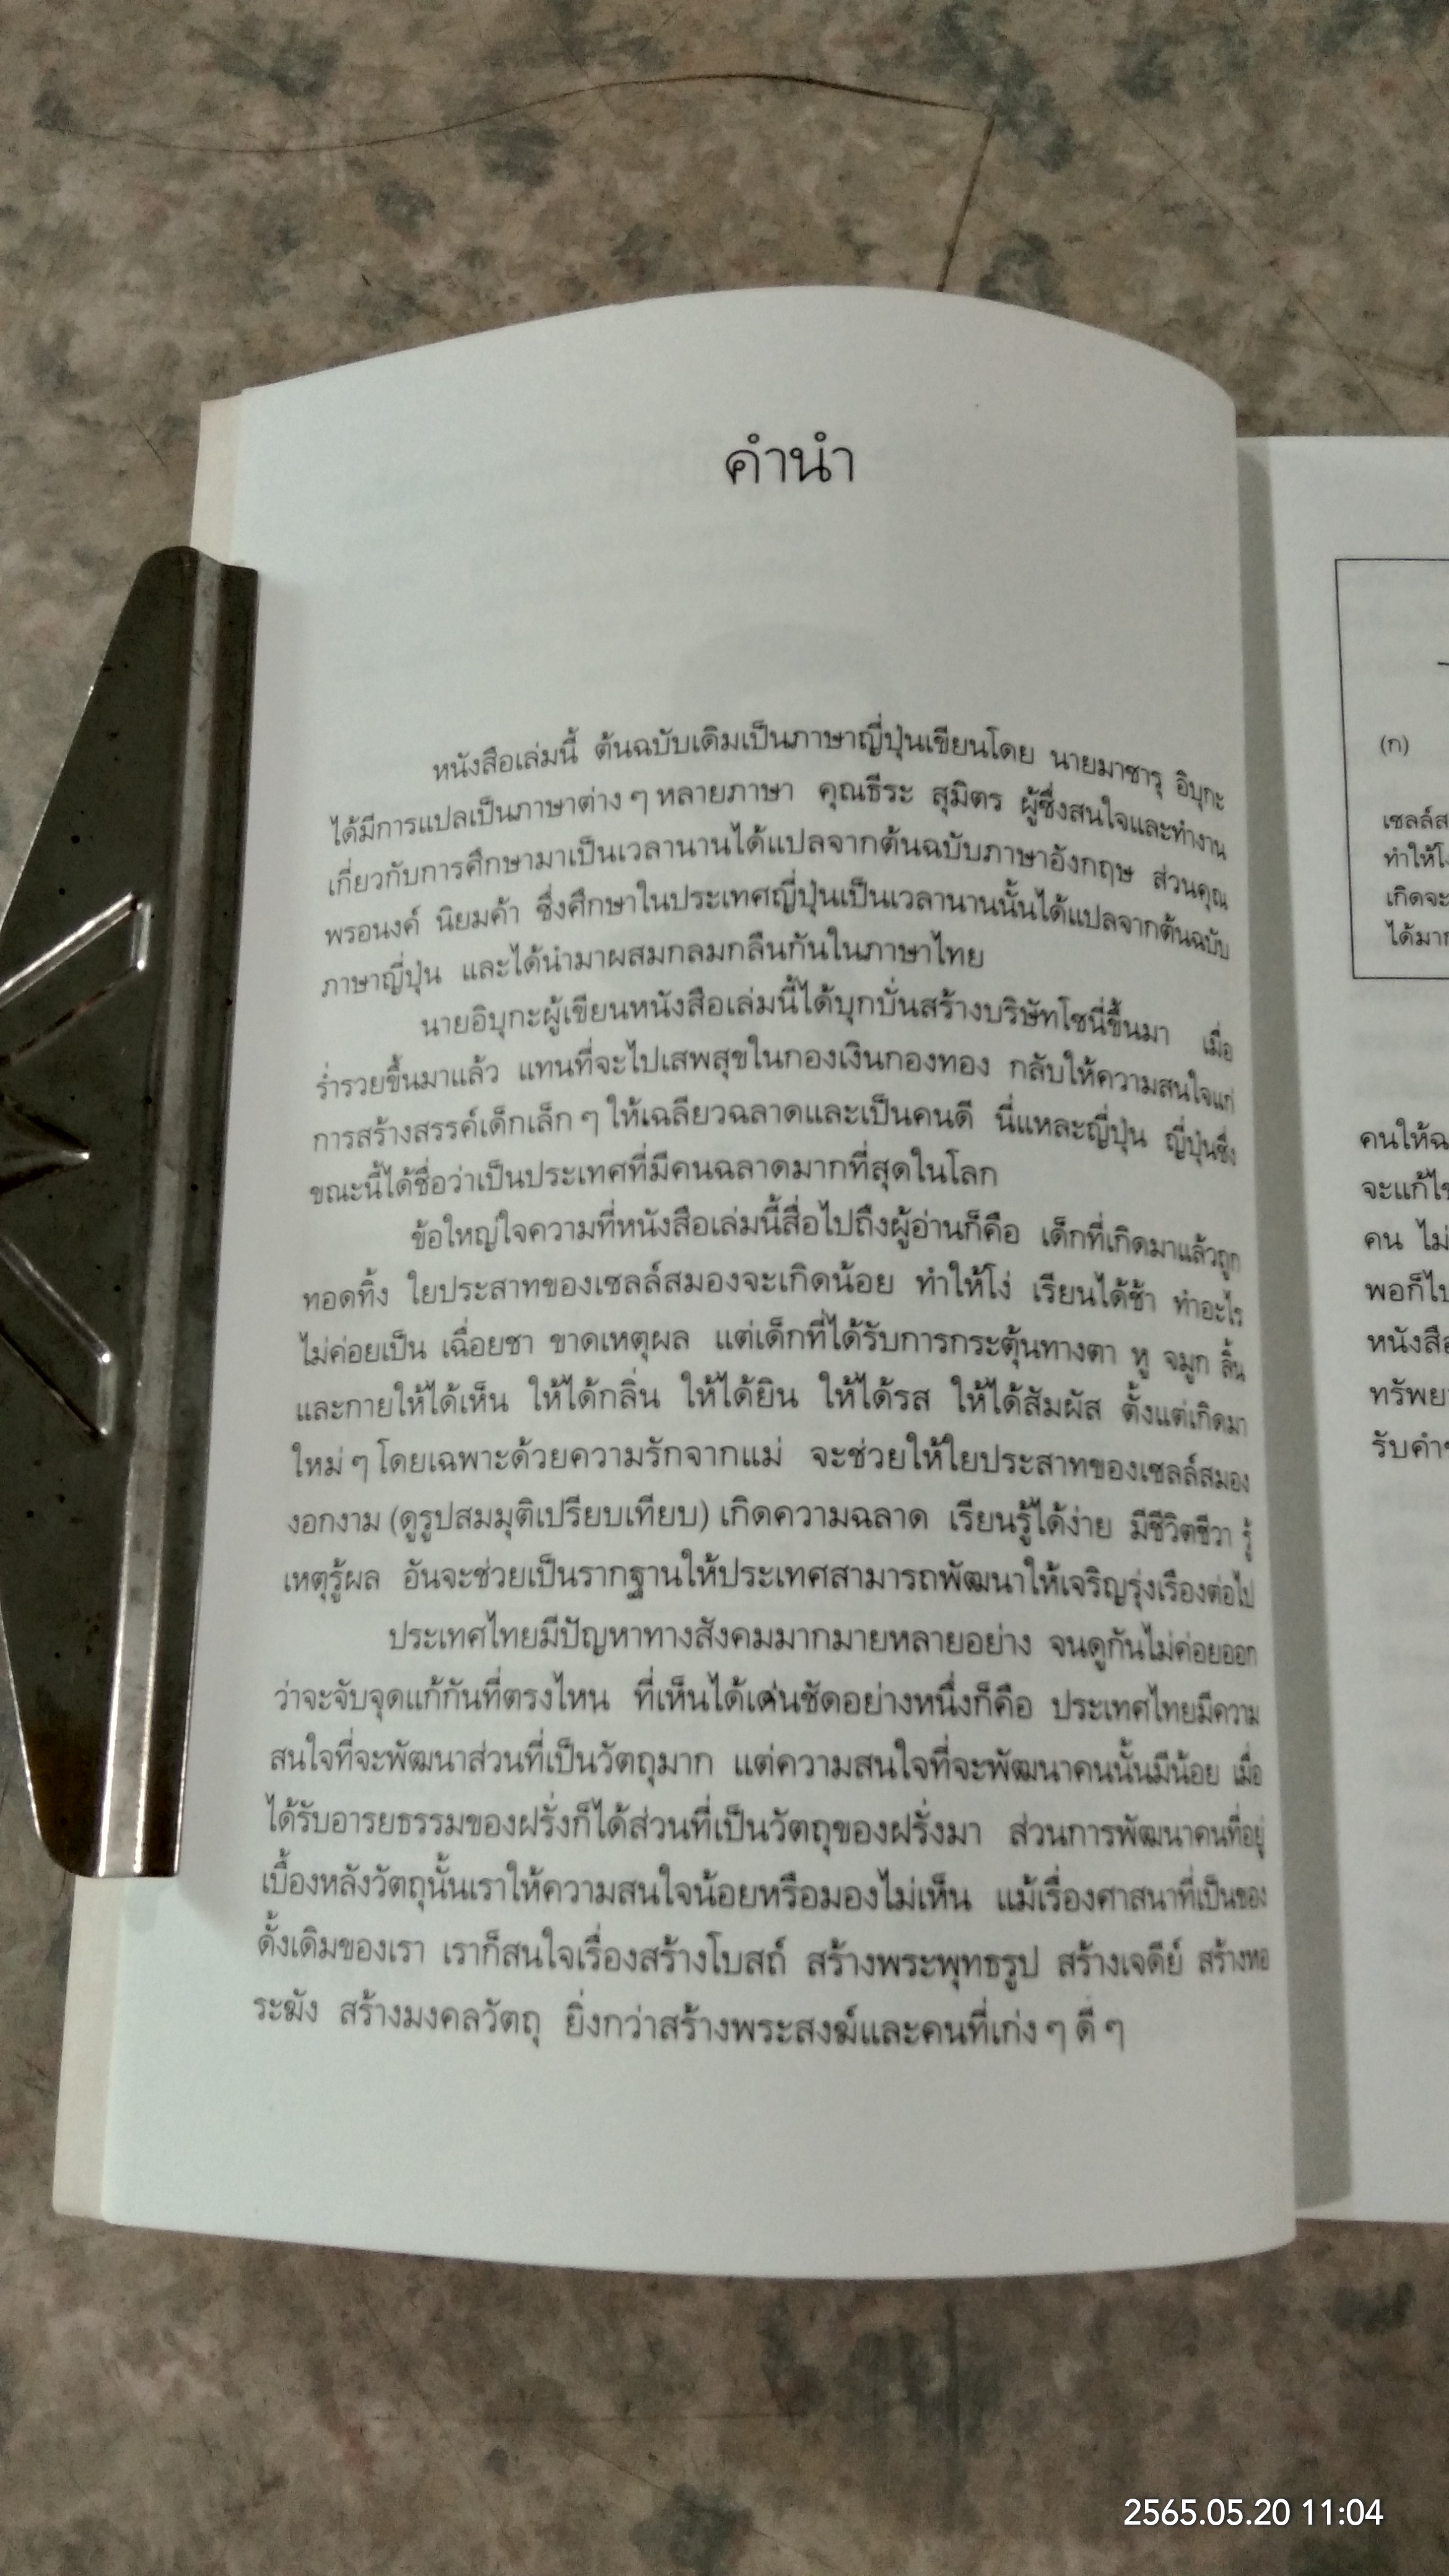 คำนำ
หนังสือเล่มนี้ ต้นฉบับเดิมเป็นภาษาญี่ปุ่นเขียนโดย นายมาซารุ อิบุกะ
ได้มีการแปลเป็นภาษาต่าง ๆ หลายภาษา คุณธีระ สุมิตร ผู้ซึ่งสนใจและทำงาน
เกี่ยวกับการศึกษามาเป็นเวลานานได้แปลจากต้นฉบับภาษาอังกฤษ ส่วนคุณ
พรอนงค์ นิยมค้า ซึ่งศึกษาในประเทศญี่ปุ่นเป็นเวลานานนั้นได้แปลจากต้นฉบับ
ภาษาญี่ปุ่น และได้นำมาผสมกลมกลืนกันในภาษาไทย
นายอิบุกะผู้เขียนหนังสือเล่มนี้ได้บุกบั่นสร้างบริษัทโซนี่ขึ้นมา เมื่อ
ร่ำรวยขึ้นมาแล้ว แทนที่จะไปเสพสุขในกองเงินกองทอง กลับให้ความสนใจแก่
การสร้างสรรค์เด็กเล็ก ๆ ให้เฉลียวฉลาดและเป็นคนดี นี่แหละญี่ปุ่น ญี่ปุ่นซึ่ง
ขณะนี้ได้ชื่อว่าเป็นประเทศที่มีคนฉลาดมากที่สุดในโลก
ข้อใหญ่ใจความที่หนังสือเล่มนี้สื่อไปถึงผู้อ่านก็คือ เด็กที่เกิดมาแล้วถูก
ทอดทิ้ง ใยประสาทของเซลล์สมองจะเกิดน้อย ทำให้โง่ เรียนได้ช้า ทำอะไร
ไม่ค่อยเป็น เฉื่อยชา ขาดเหตุผล แต่เด็กที่ได้รับการกระตุ้นทางตา หู จมูก ลิ้น
และกายให้ได้เห็น ให้ได้กลิ่น ให้ได้ยิน ให้ได้รส ให้ได้สัมผัส ตั้งแต่เกิดมา
ใหม่ ๆ โดยเฉพาะด้วยความรักจากแม่ จะช่วยให้ใยประสาทของเซลล์สมอง
งอกงาม (ดูรูปสมมุติเปรียบเทียบ) เกิดความฉลาด เรียนรู้ได้ง่าย มีชีวิตชีวา รู้
เหตุรู้ผล อันจะช่วยเป็นรากฐานให้ประเทศสามารถพัฒนาให้เจริญรุ่งเรืองต่อไป
ประเทศไทยมีปัญหาทางสังคมมากมายหลายอย่าง จนดูกันไม่ค่อยออก
ว่าจะจับจุดแก้กันที่ตรงไหน ที่เห็นได้เด่นชัดอย่างหนึ่งก็คือ ประเทศไทยมีความ
สนใจที่จะพัฒนาส่วนที่เป็นวัตถุมาก แต่ความสนใจที่จะพัฒนาคนนั้นมีน้อย เมื่อ
ได้รับอารยธรรมของฝรั่งก็ได้ส่วนที่เป็นวัตถุของฝรั่งมา ส่วนการพัฒนาคนที่อยู่
เบื้องหลังวัตถุนั้นเราให้ความสนใจน้อยหรือมองไม่เห็น แม้เรื่องศาสนาที่เป็นของ
ดั้งเดิมของเรา เราก็สนใจเรื่องสร้างโบสถ์ สร้างพระพุทธรูป สร้างเจดีย์ สร้างหอ
ระฆัง สร้างมงคลวัตถุ ยิ่งกว่าสร้างพระสงฆ์และคนที่เก่ง ๆ ดี ๆ
(ก)
เซลล์ส
ทำให้โง
เกิดจะ
ได้มาก
คนให้ฉ
จะแก้ไข
คน ไม่
พอก็ไป
หนังสือ
ทรัพย
รับคำ
2565.05.20 11:04